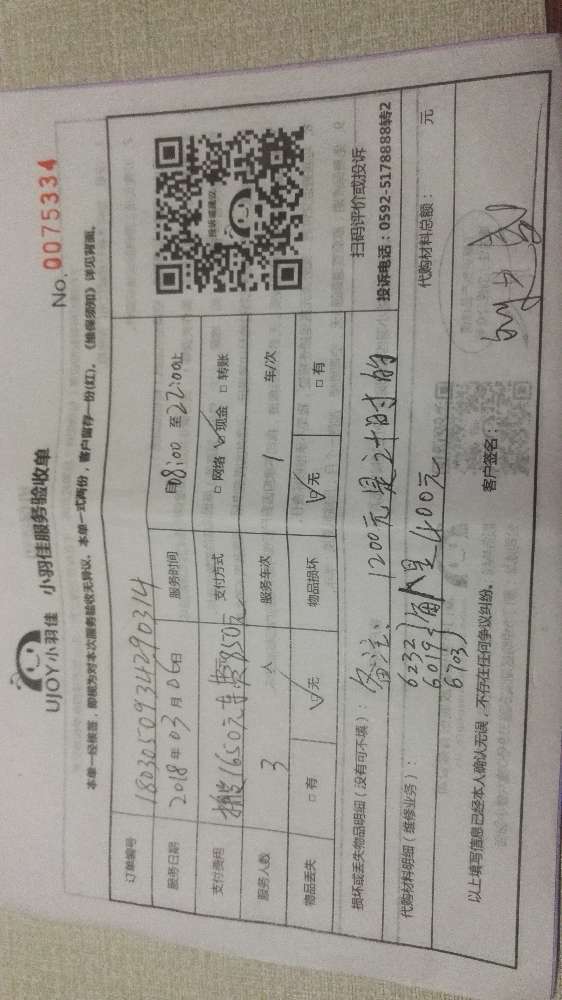 UJOY小羽佳
小羽佳服务验收单
No. 0075334
本单一经核签，即视为对本次服务验收无异议，本单一式两份，客户留存一份(红)，《维保须知》详见背面。
订单编号 1803050934290314
服务日期 2018年03月06日 服务时间 自08:00至22:00止
支付费用 1650元 850元 支付方式 □网络 ☑现金 □转账
服务人数 3 人 服务车次 1 车/次
物品丢失 □有 ☑无 物品损坏 ☑无 □有
投诉或建议
扫码评价或投诉
投诉电话：0592-5178888转2
损坏或丢失物品明细（没有可不填）： 备注：1200元是计时的
6232
6019 每人是400元
6703
代购材料明细（维修业务）：
代购材料总额： 元
以上填写信息已经本人确认无误，不存在任何争议纠纷。
客户签名：